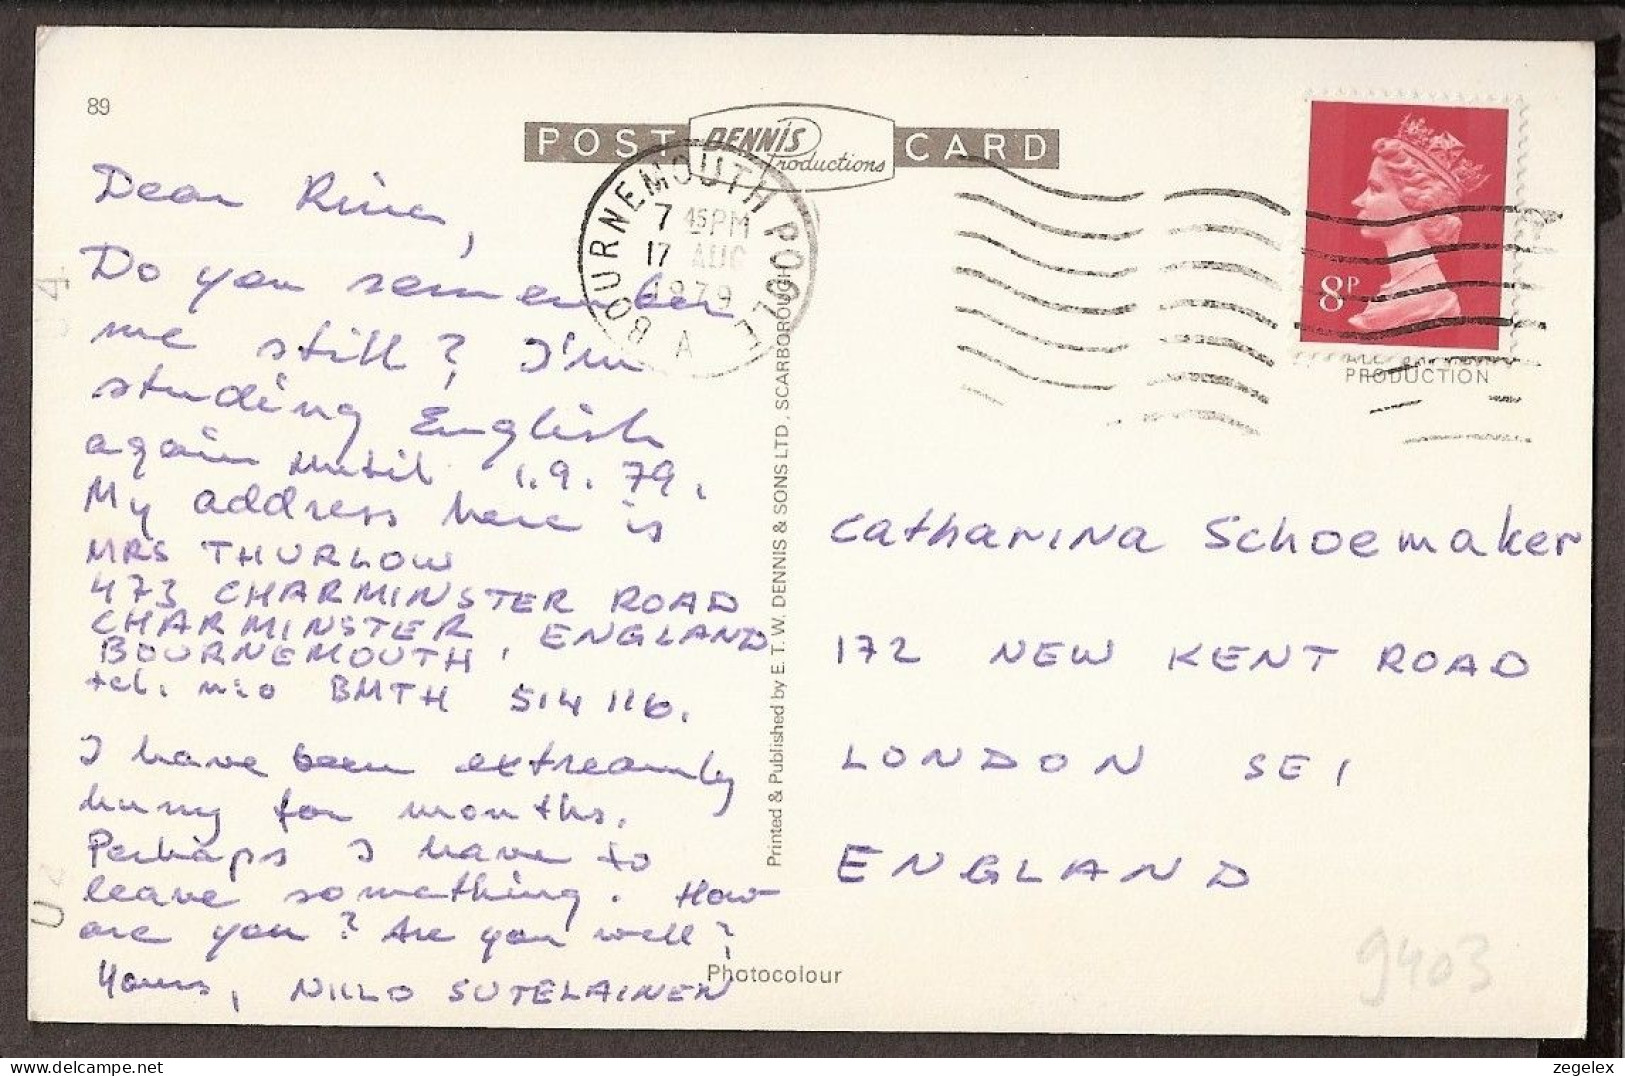 89
POST CARD
DENNIS
Productions
BOURNEMOUTH POOLE
7 45PM
17 AUG
1979
A
8P
PRODUCTION
Dear Rina,
Do you remember
me still? I'm
studing English
again until 1.9.79.
My address here is
MRS THURLOW
473 CHARMINSTER ROAD
CHARMINSTER
BOURNEMOUTH, ENGLAND
tel. n:o BMTH 514 116.
I have been extreamly
for months.
Perhaps I have to
leave something. How
are you? Are you well?
Yours, NIILO SUTELAINEN
Printed & Published by E. T. W. DENNIS & SONS LTD. SCARBOROUGH
Photocolour
Catharina Schoemaker
172 NEW KENT ROAD
LONDON SE1
ENGLAND
9403
zegelex
www.delcampe.net